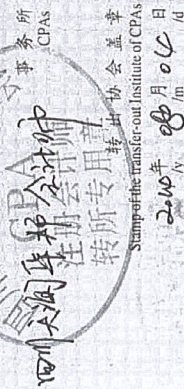 四川 会计师 事务所
CPAs
CPA
注册会计师
转所专用章
转出协会盖章
Stamp of the transfer-out Institute of CPAs
2010年 08月 04日
/y /m /d